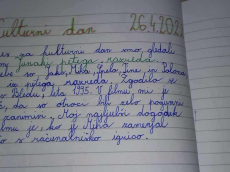 Kulturni dan 26.4.202
za kulturni dan smo gledali
Junaki petega razreda.
so Jaka, Miha, Špela, Tine in Polona
iz petega razreda. Zgodilo se
Bledu, leta 1995. V filmu mi je
da so otroci bili zelo pogumni
zanimivi. Moj najljubši dogodek
filmu je, ko je Miha zamenjal
s računalniško igrico.